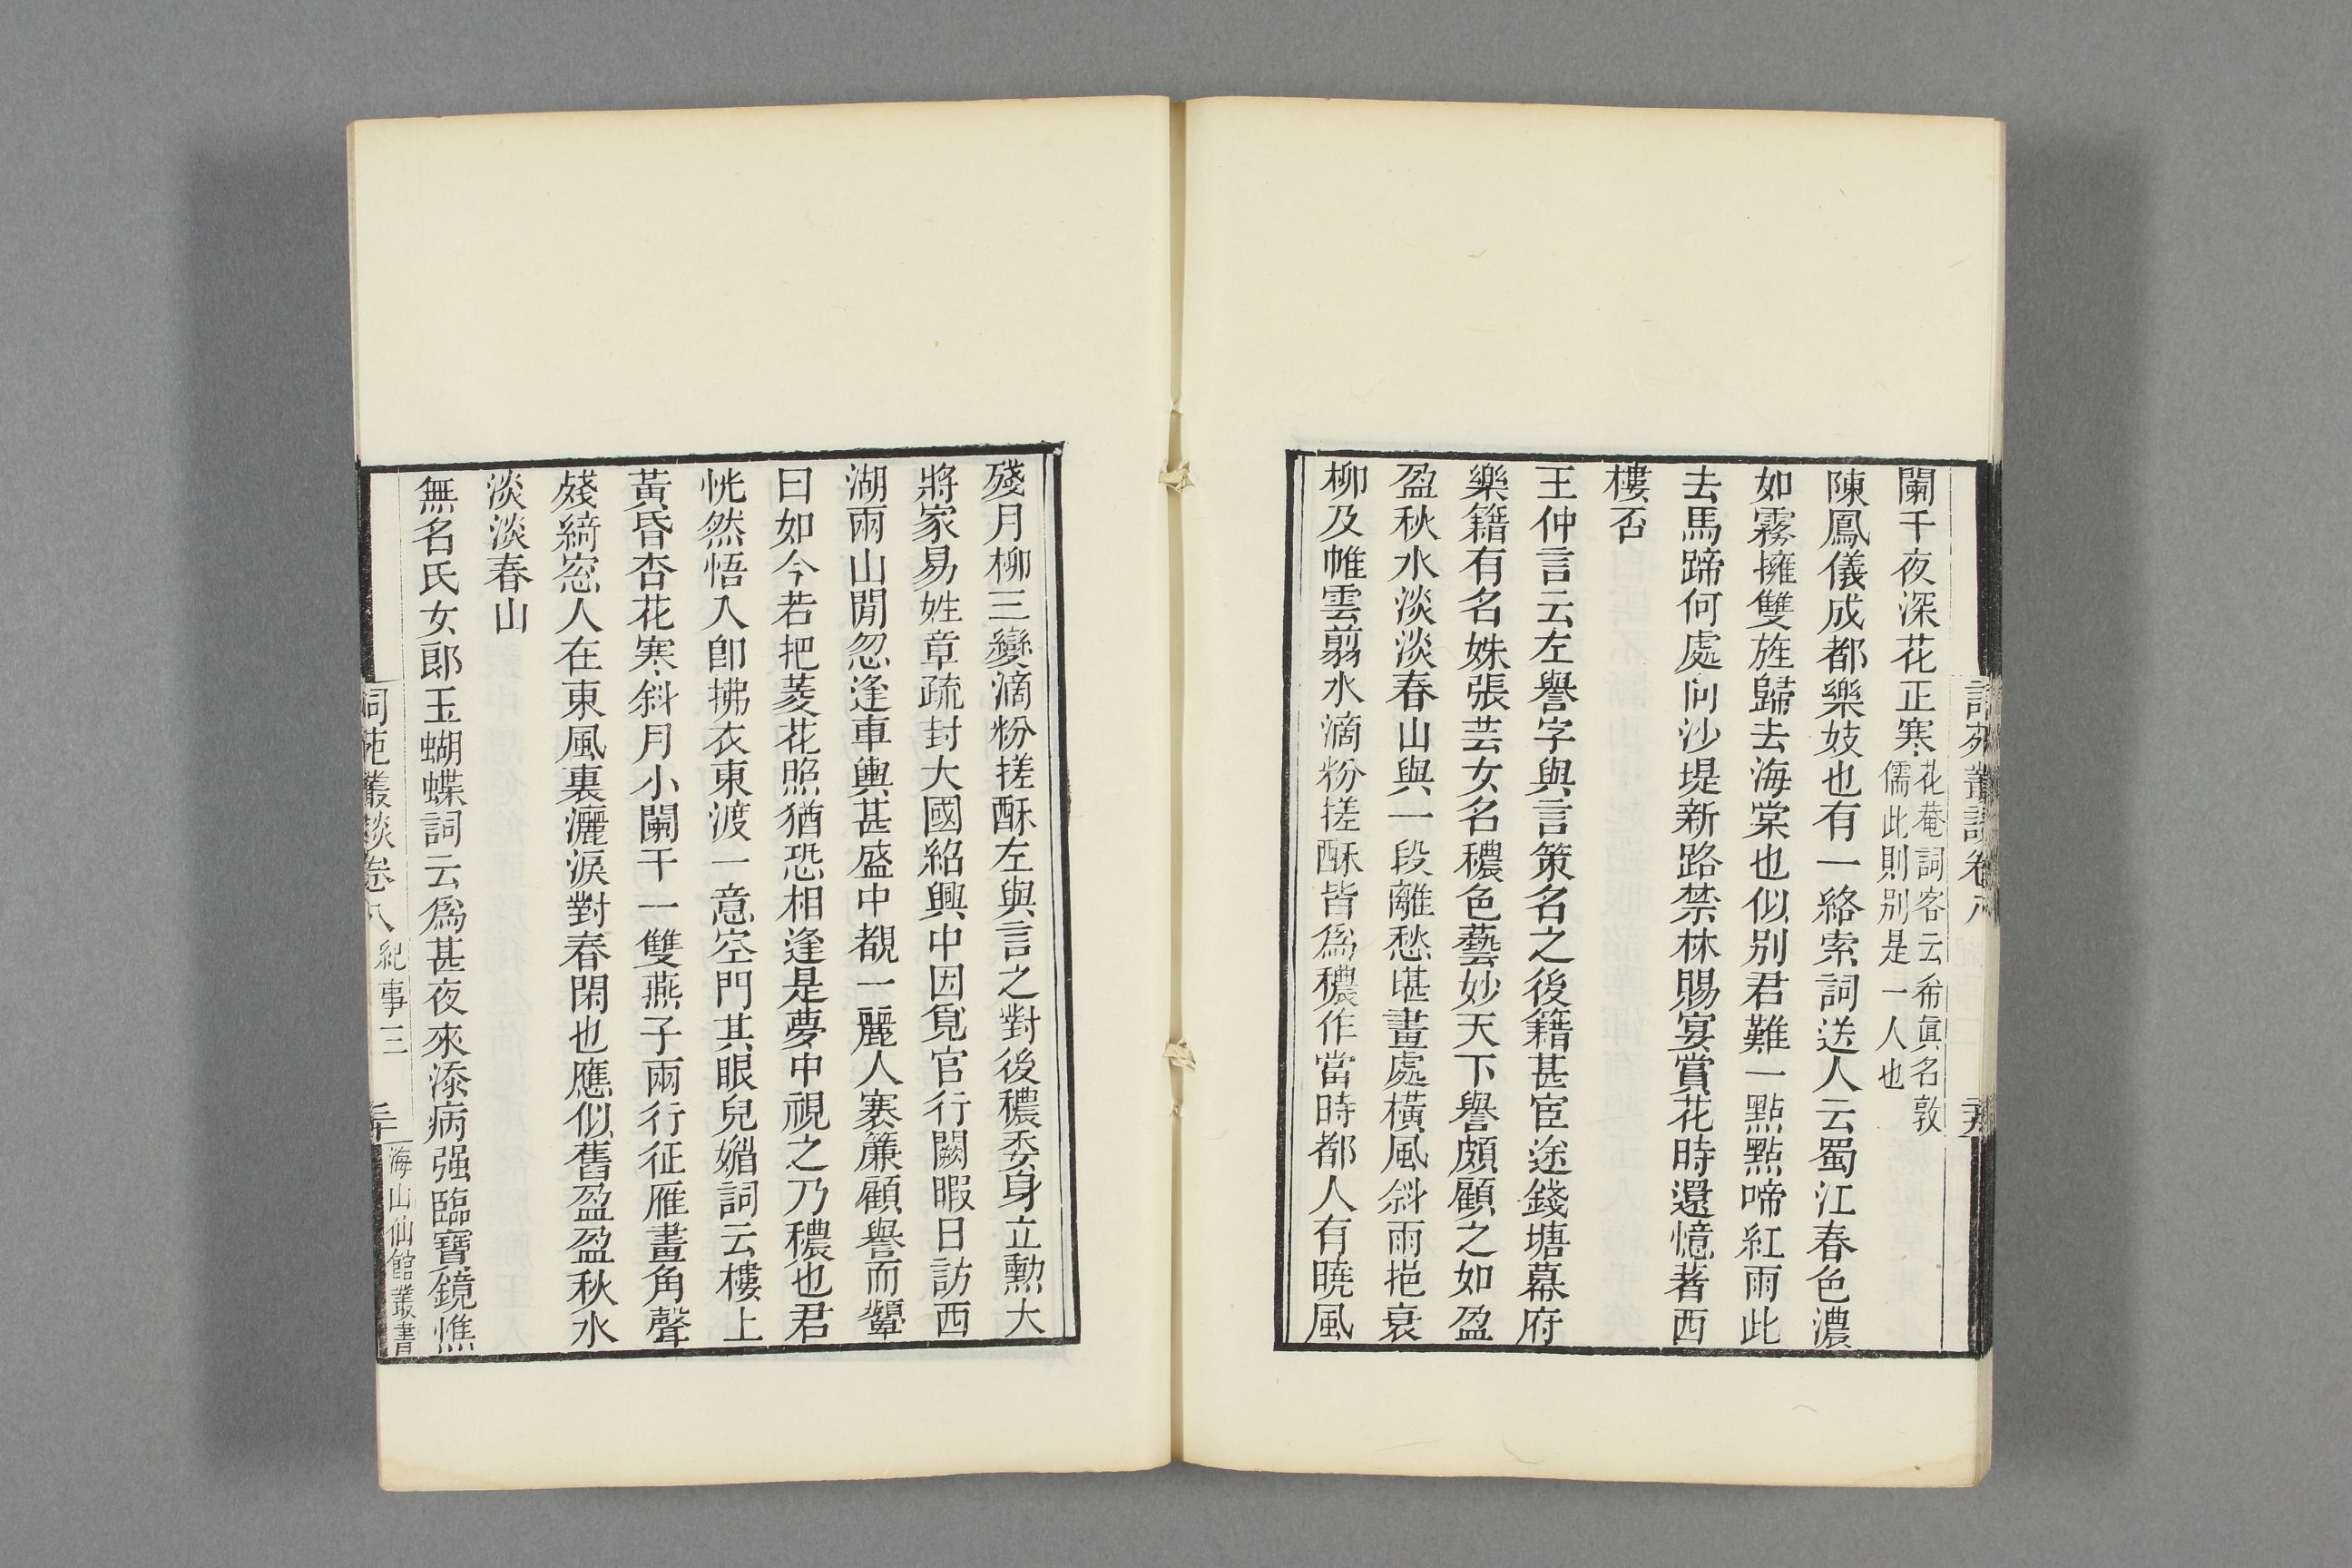 闌干夜深花正寒花菴詞客云希眞名敦
儒此則别是一人也
陳鳳儀成都樂妓也有一絡索詞送人云蜀江春色濃
如霧擁雙旌歸去海棠也似别君難一點點啼紅雨此
去馬蹄何處向沙堤新路禁林賜宴賞花時還憶著西
樓否
王仲言云左譽字與言策名之後籍甚宦途錢塘幕府
樂籍有名姝張芸女名穠色藝妙天下譽頗顧之如盈
盈秋水淡淡春山與一段離愁堪畫處橫風斜雨挹衰
柳及帷雲翦水滴粉搓酥皆爲穠作當時都人有曉風
殘月柳三變滴粉搓酥左與言之對後穠委身立勳大
將家易姓章疏封大國紹興中因覓官行闕暇日訪西
湖兩山閒忽逢車輿甚盛中覩一麗人褰簾顧譽而顰
曰如今若把菱花照猶恐相逢是夢中視之乃穠也君
恍然悟入卽拂衣東渡一意空門其眼兒媚詞云樓上
黃昏杏花寒斜月小闌干一雙燕子兩行征雁畫角聲
殘綺窓人在東風裏灑淚對春閑也應似舊盈盈秋水
淡淡春山
無名氏女郎玉蝴蝶詞云爲甚夜來添病强臨寶鏡憔
詞苑叢談卷八 紀事三 三十 海山仙館叢書